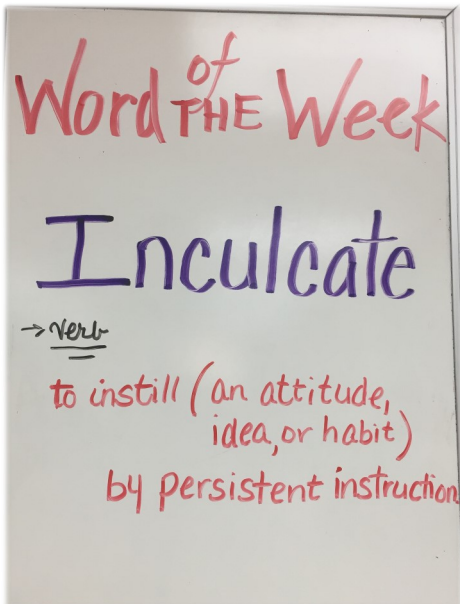 Word of THE Week
Inculcate
→ verb
to instill (an attitude,
idea, or habit)
by persistent instruction